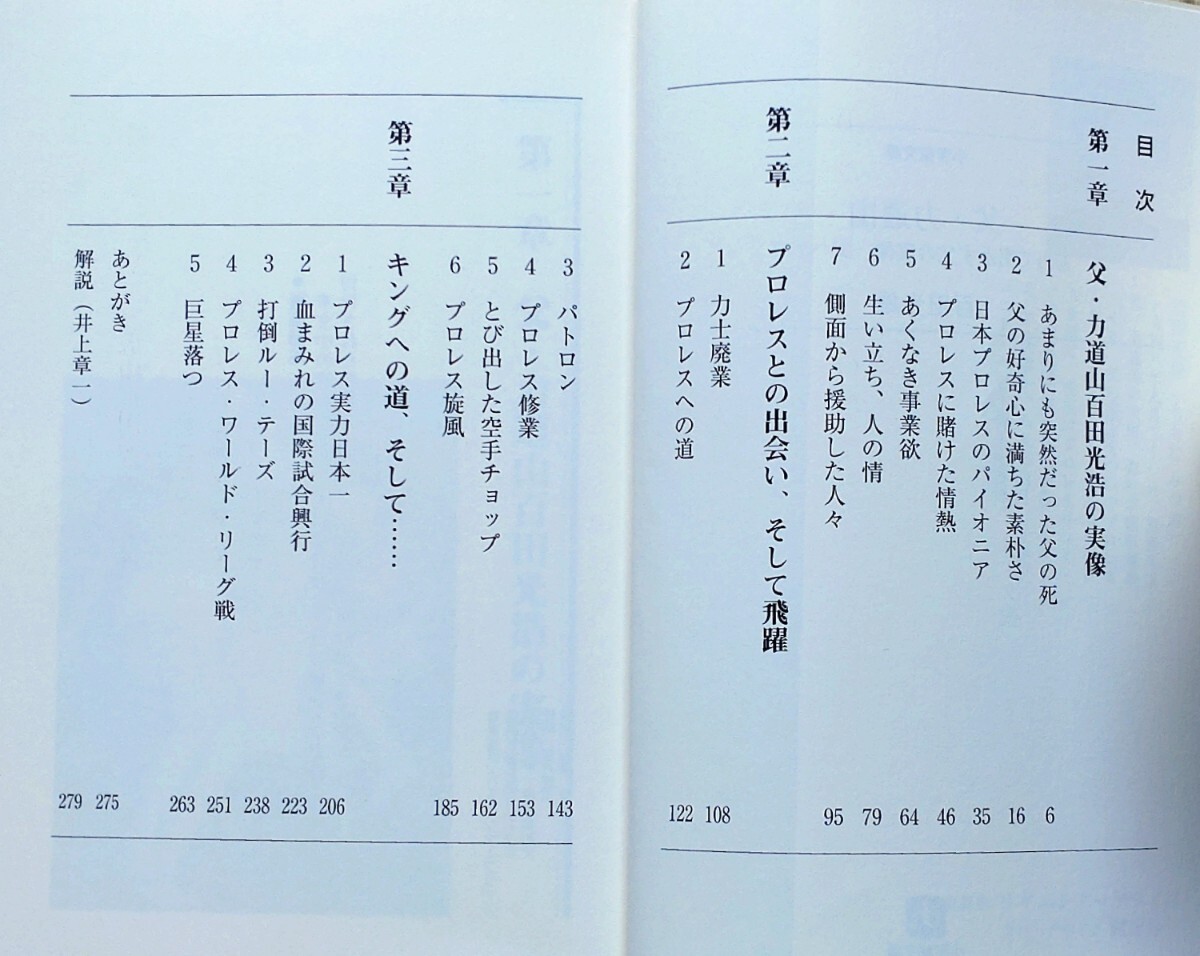 目次
第一章 父・力道山百田光浩の実像
1 あまりにも突然だった父の死 6
2 父の好奇心に満ちた素朴さ 16
3 日本プロレスのパイオニア 35
4 プロレスに賭けた情熱 46
5 あくなき事業欲 64
6 生い立ち、人の情 79
7 側面から援助した人々 95
第二章 プロレスとの出会い、そして飛躍
1 力士廃業 108
2 プロレスへの道 122
3 パトロン 143
4 プロレス修業 153
5 とび出した空手チョップ 162
6 プロレス旋風 185
第三章 キングへの道、そして……
1 プロレス実力日本一 206
2 血まみれの国際試合興行 223
3 打倒ルー・テーズ 238
4 プロレス・ワールド・リーグ戦 251
5 巨星落つ 263
あとがき 275
解説（井上章一） 279